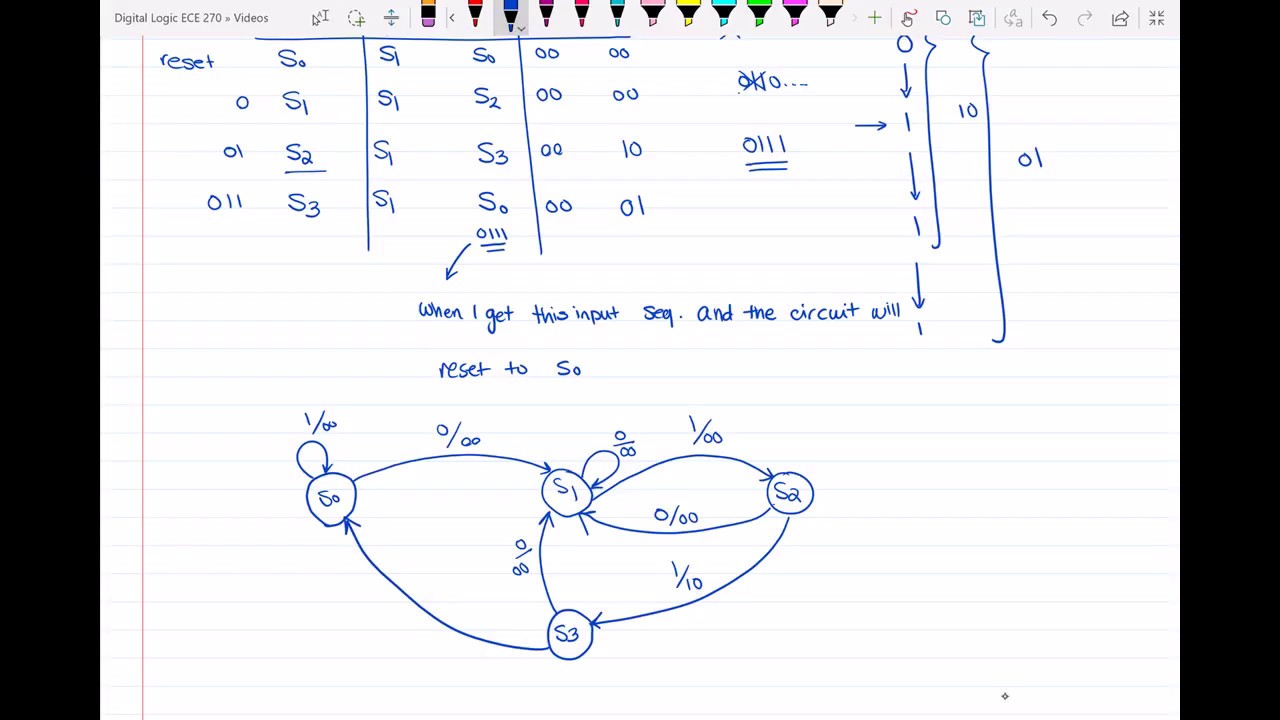 Digital Logic ECE 270 » Videos
reset S0 S1 S0 00 00
0 S1 S1 S2 00 00
01 S2 S1 S3 00 10
011 S3 S1 S0 00 01
0111
0111
0
1
1
1
10
01
When I get this input seq. and the circuit will
reset to S0
1/00
0/00
0/00
1/00
S0
S1
S2
0/00
0/00
1/10
S3